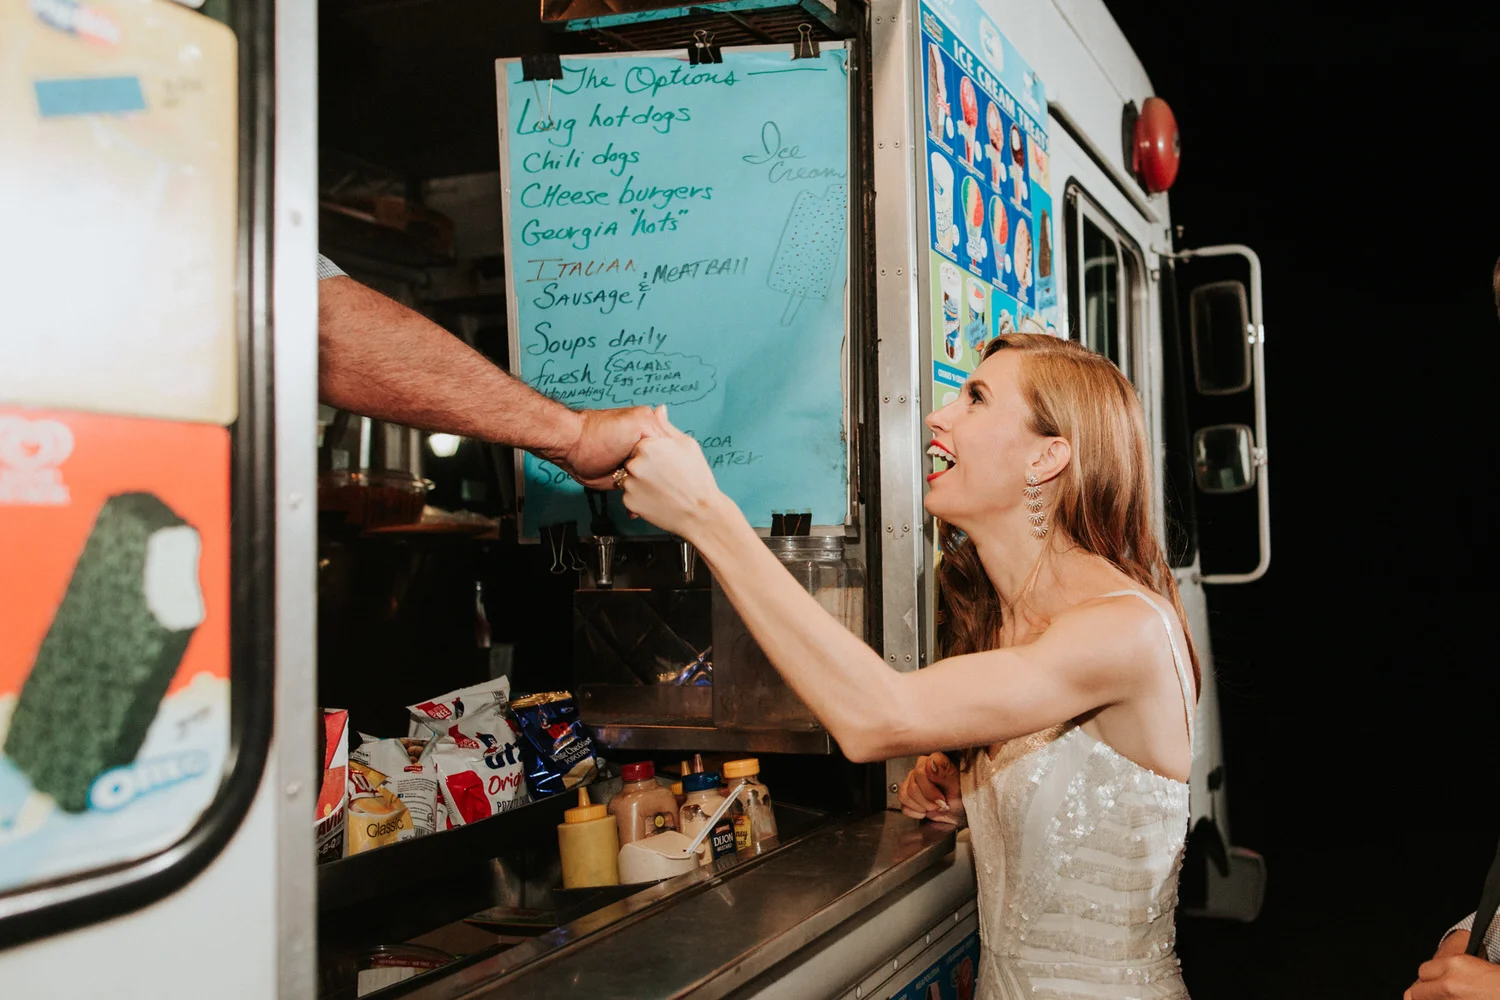 The Options
Long hotdogs
Chili dogs
CHeese burgers
Georgia "hots"
ITALIAN
& MEATBAll
SAUSAGE
Soups daily
fresh
SALADS
Egg-TUNA
CHICKEN
Ice
Cream
COCOA
WATer
ICE CREAM TREATS
OREO
Classic
utz
Original
White Cheddar
POPCORN
DIJON
MUSTARD